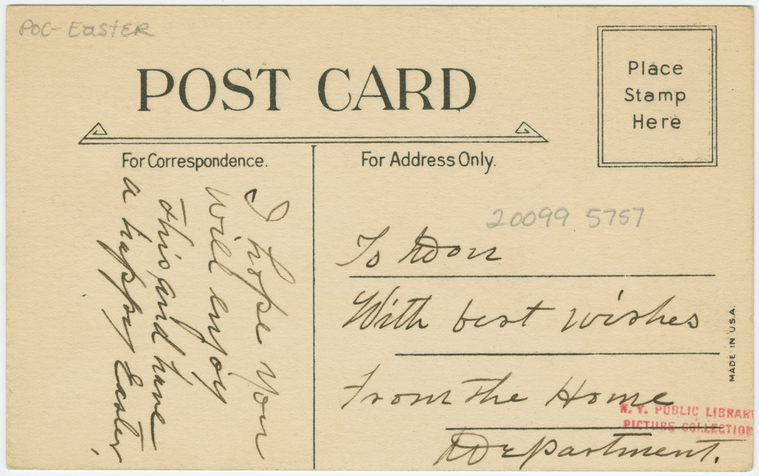 POC- EASTER
POST CARD
Place
Stamp
Here
For Correspondence.
For Address Only.
I hope you
will enjoy
this and have
a happy Easter.
20099 5757
To Don
With best wishes
From the Home
Department.
MADE IN U.S.A.
N. Y. PUBLIC LIBRARY
PICTURE COLLECTION